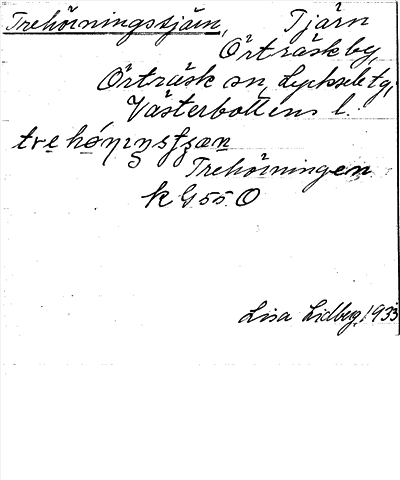 Trehörningstjärn, Tjärn
Örträsk by,
Örträsk sn, Lycksele tg,
Västerbottens l.
Trehörningen
K G 55 O
Lisa Lidberg, 1933